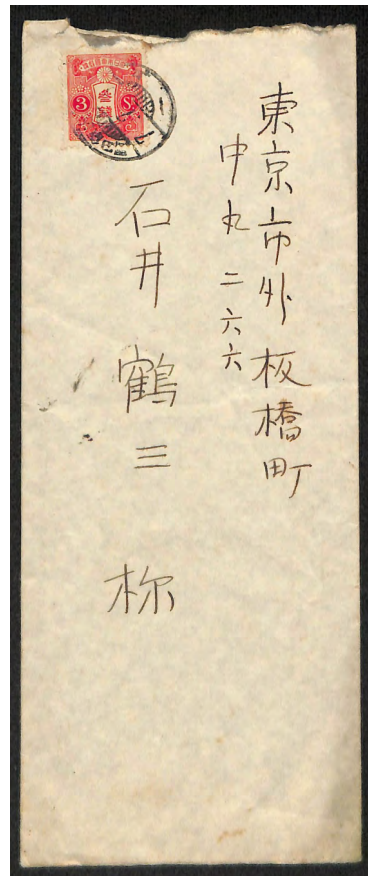 東京市外板橋町
中丸二六六
石井鶴三様
3 Sn
参銭